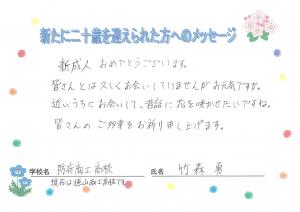 新たに二十歳を迎えられた方へのメッセージ
新成人 おめでとうございます。
皆さんとは久しくお会いしていませんがお元気ですか。
近いうちにお会いして、昔話に花を咲かせたいですね。
皆さんの ご多幸をお祈り申し上げます。
学校名 防府商工高校 氏名 竹森 勇
現在は徳山商工高校です。